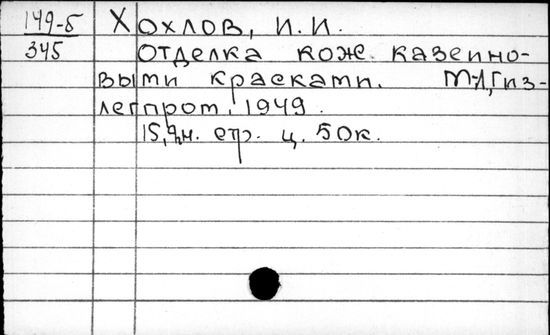 149-5 Хохлов, И. И.
345 Отделка кож казеино-
выми красками. М-Л, Гиз-
легпром, 1949.
15, 2н. стр. ц. 50к.